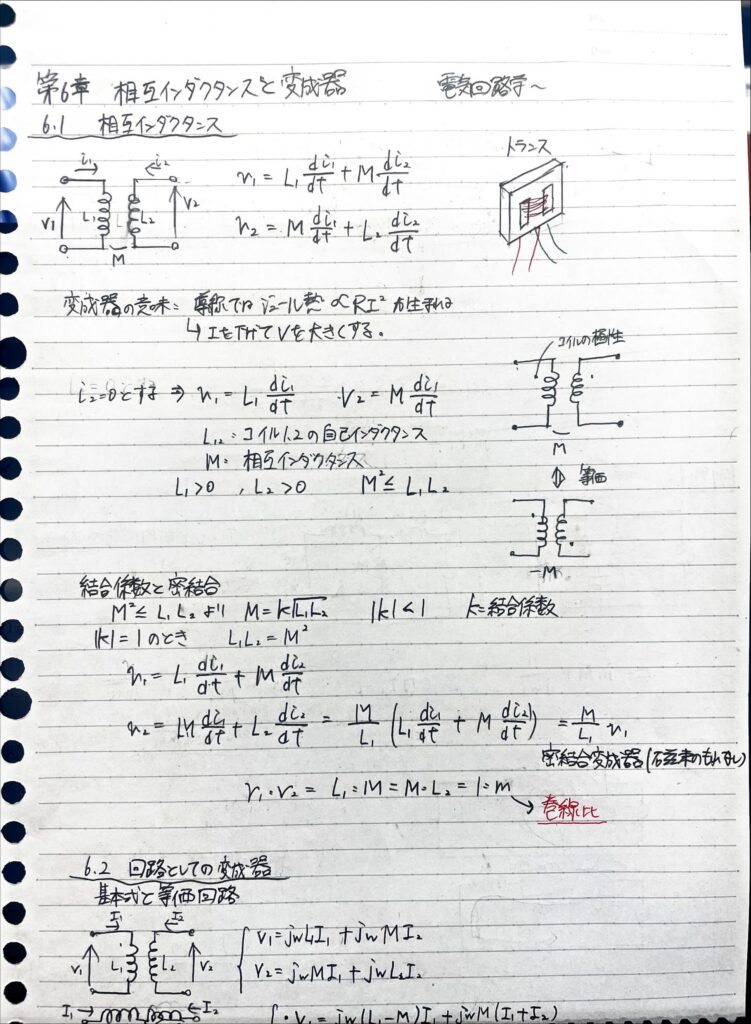 第6章 相互インダクタンスと変成器 電気回路学〜
6.1 相互インダクタンス
トランス
i₁ i₂
v₁ L₁ L₂ v₂
M
v₁ = L₁ di₁/dt + M di₂/dt
v₂ = M di₁/dt + L₂ di₂/dt
変成器の意味: 導線では ジュール熱 ∝ RI² が生まれる
↳ Iを下げてVを大きくする.
コイルの極性
M
⇕ 等価
-M
i₂=0とする ⇒ v₁ = L₁ di₁/dt V₂ = M di₁/dt
L₁,₂: コイル1.2の自己インダクタンス
M: 相互インダクタンス
L₁>0 , L₂>0 M² ≤ L₁L₂
結合係数と密結合
M² ≤ L₁L₂ より M = k√L₁L₂ |k| < 1 k=結合係数
|k| = 1 のとき L₁L₂ = M²
v₁ = L₁ di₁/dt + M di₂/dt
v₂ = M di₁/dt + L₂ di₂/dt = M/L₁ (L₁ di₁/dt + M di₂/dt) = M/L₁ v₁
密結合変成器(磁束のもれなし)
v₁:v₂ = L₁:M = M:L₂ = 1:m
巻線比
6.2 回路としての変成器
基本式と等価回路
I₁ I₂
V₁ L₁ L₂ V₂
V₁=jwL₁I₁ + jwMI₂
V₂=jwMI₁ + jwL₂I₂
I₁ I₂
・V₁ = jw(L₁-M)I₁ + jwM(I₁+I₂)